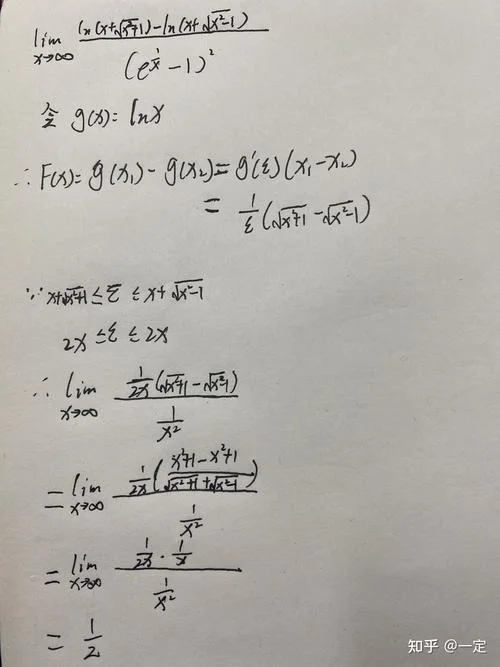 lim x→∞ (ln(x+√(x²+1)) - ln(x+√(x²-1))) / (e^(1/x) - 1)²
令 g(x) = lnx
∴ F(x) = g(x₁) - g(x₂) = g'(ξ)(x₁-x₂)
= 1/ξ (√(x²+1) - √(x²-1))
∵ x+√(x²+1) ≤ ξ ≤ x+√(x²-1)
2x ≤ ξ ≤ 2x
∴ lim x→∞ (1/2x (√(x²+1) - √(x²-1))) / (1/x²)
= lim x→∞ (1/2x ((x²+1-x²+1) / (√(x²+1)+√(x²-1)))) / (1/x²)
= lim x→∞ (1/2x · 1/x) / (1/x²)
= 1/2
知乎 @一定